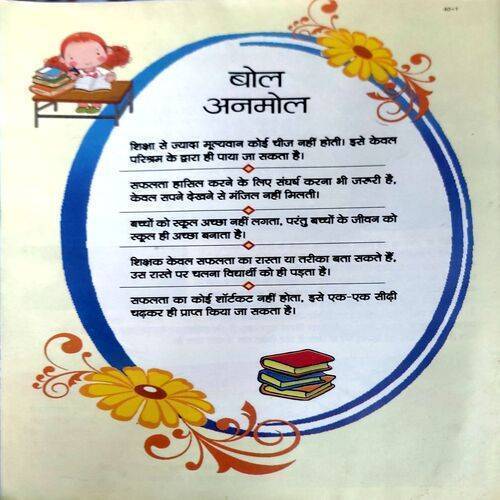 बोल
अनमोल
शिक्षा से ज्यादा मूल्यवान कोई चीज नहीं होती। इसे केवल
परिश्रम के द्वारा ही पाया जा सकता है।
सफलता हासिल करने के लिए संघर्ष करना भी जरूरी है,
केवल सपने देखने से मंजिल नहीं मिलती।
बच्चों को स्कूल अच्छा नहीं लगता, परंतु बच्चों के जीवन को
स्कूल ही अच्छा बनाता है।
शिक्षक केवल सफलता का रास्ता या तरीका बता सकते हैं,
उस रास्ते पर चलना विद्यार्थी को ही पड़ता है।
सफलता का कोई शॉर्टकट नहीं होता, इसे एक-एक सीढ़ी
चढ़कर ही प्राप्त किया जा सकता है।